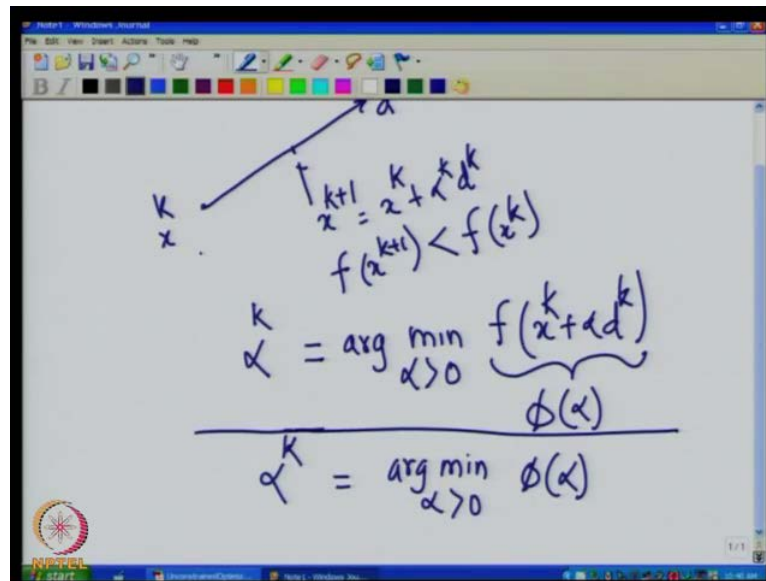 Note1 - Windows Journal
File Edit View Insert Actions Tools Help
B I
d
x^k
x^{k+1} = x^k + α^k d^k
f(x^{k+1}) < f(x^k)
α^k = arg min_{α>0} f(x^k + αd^k)
φ(α)
α^k = arg min_{α>0} φ(α)
1/1
NPTEL
start
Note1 - Windows Jou...